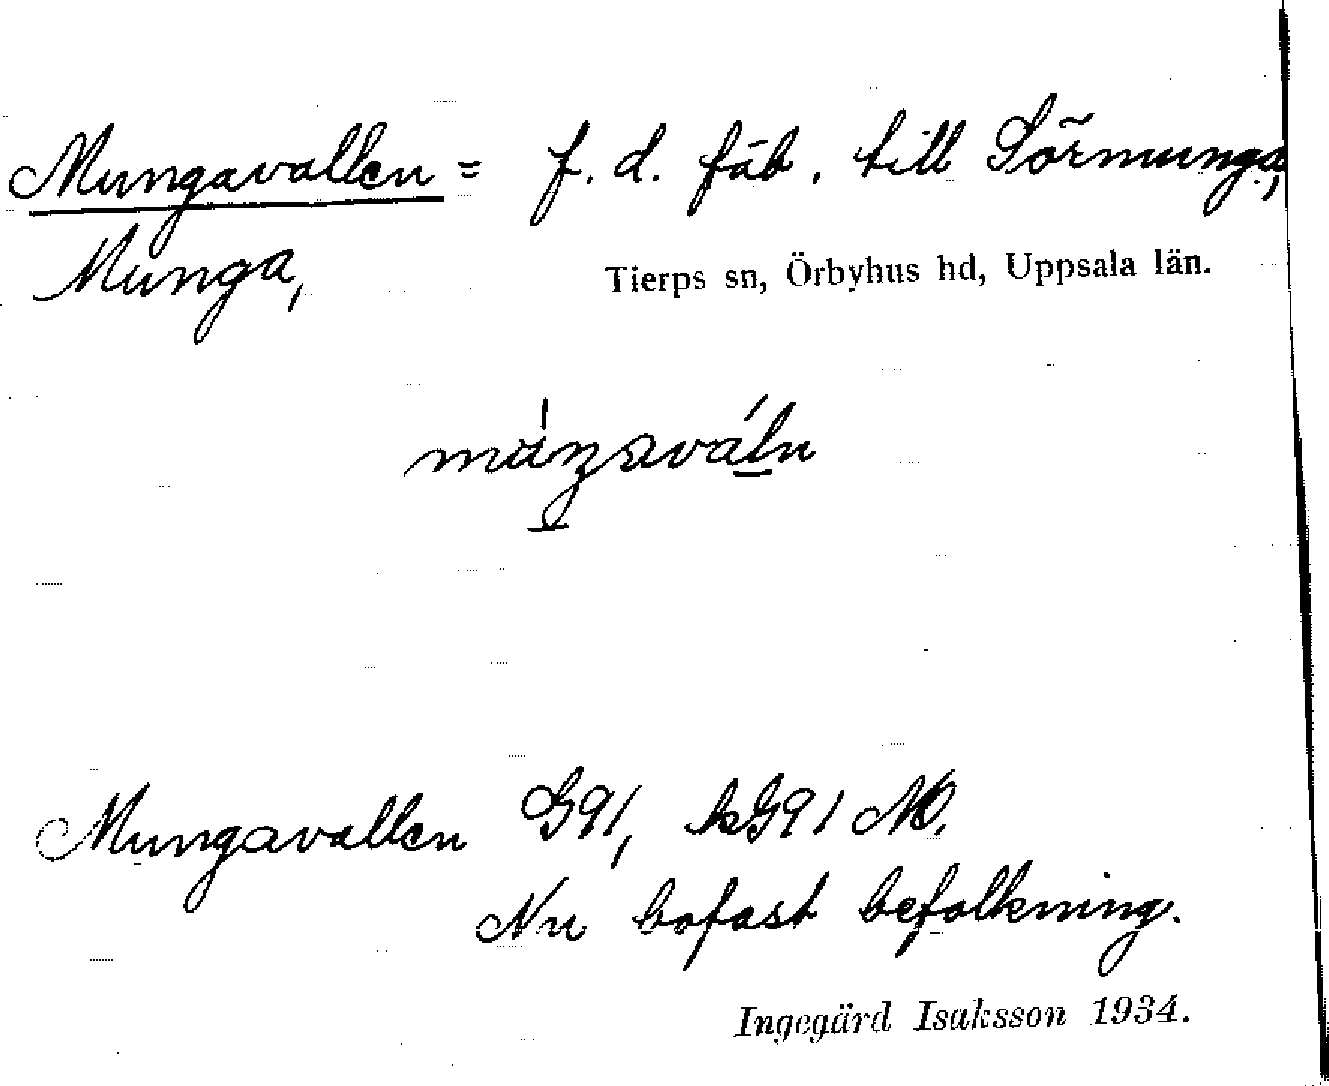 Mungavallen = f. d. fäb. till Sörmunga,
Munga,
Tierps sn, Örbyhus hd, Uppsala län.
Mungavallen G91, kG91 NO.
Nu bofast befolkning.
Ingegärd Isaksson 1934.